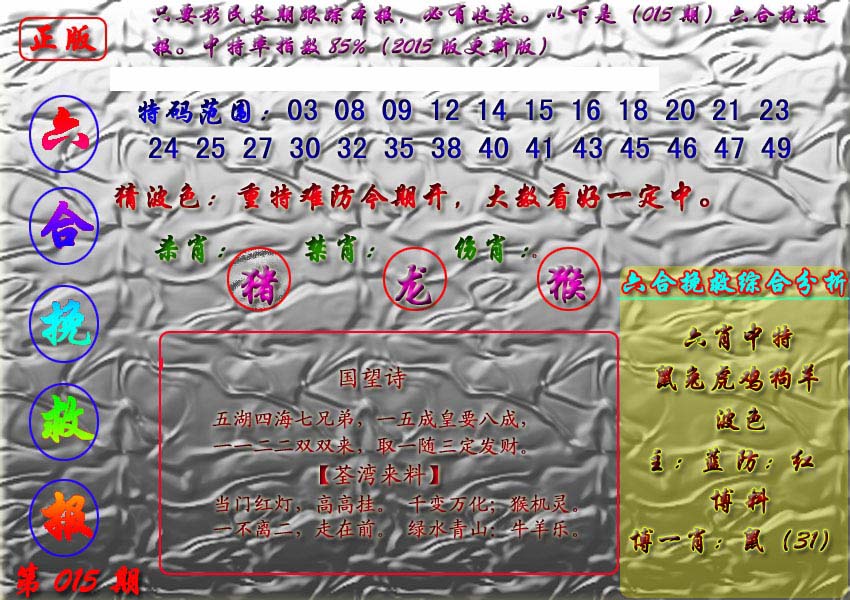 正版
只要彩民长期跟踪本报，必有收获。以下是（015期）六合挽救
报。中特率指数85%（2015版更新版）
六合挽救报
第015期
特码范围：03 08 09 12 14 15 16 18 20 21 23
24 25 27 30 32 35 38 40 41 43 45 46 47 49
猜波色：重特难防今期开，大数看好一定中。
杀肖：猪 禁肖：龙 伤肖：猴
国望诗
五湖四海七兄弟，一五成皇要八成，
一一二二双双来，取一随三定发财。
【荃湾来料】
当门红灯，高高挂。 千变万化；猴机灵。
一不离二，走在前。 绿水青山；牛羊乐。
六合挽救综合分析
六肖中特
鼠兔虎鸡狗羊
波色
主：蓝防：红
博料
博一肖：鼠（31）